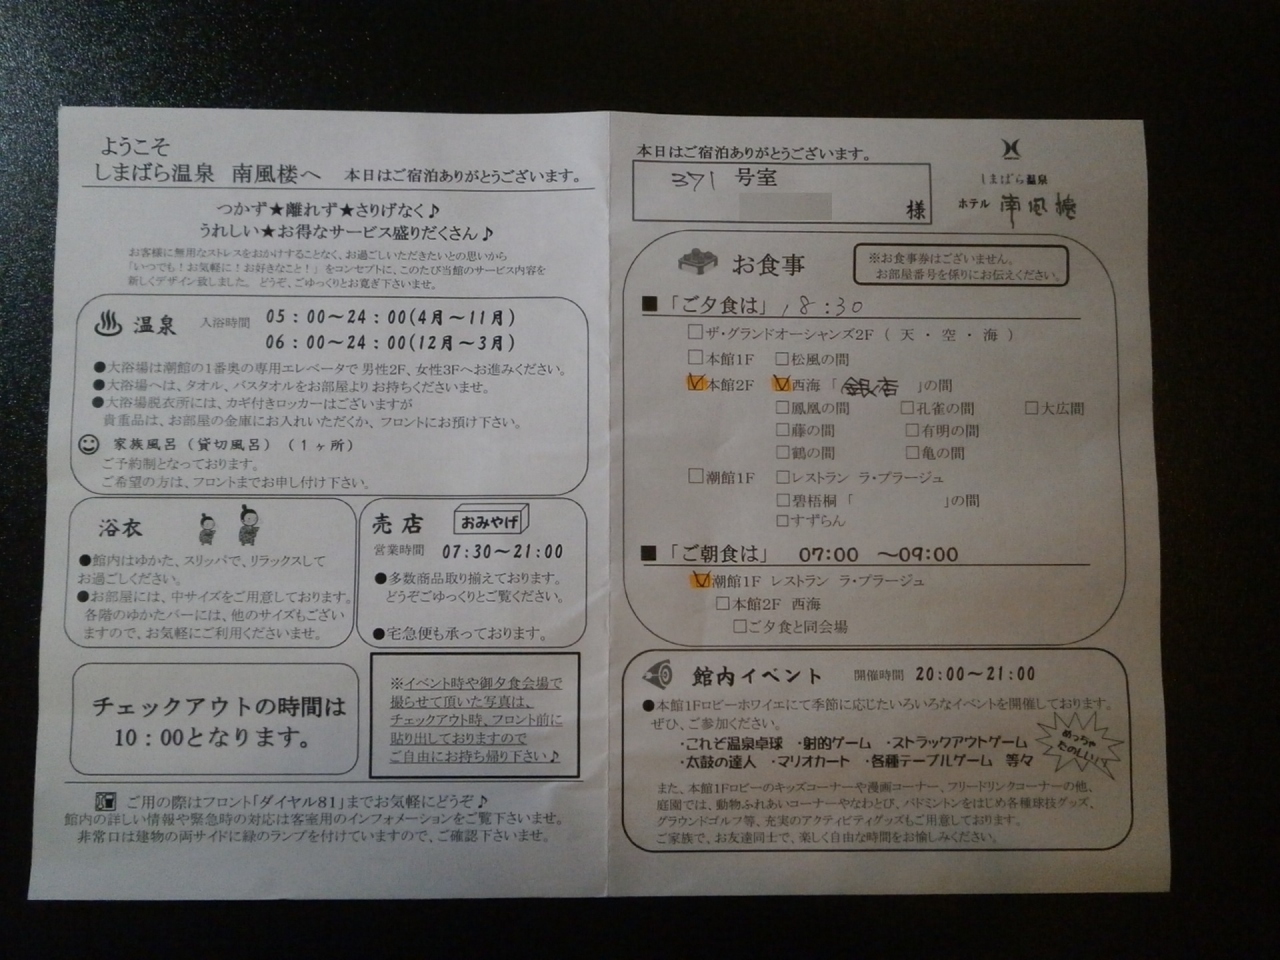 ようこそ
しまばら温泉 南風楼へ 本日はご宿泊ありがとうございます。
つかず★離れず★さりげなく♪
うれしい★お得なサービス盛りだくさん♪
お客様に無用なストレスをおかけすることなく、お過ごしいただきたいとの思いから
「いつでも!お気軽に!お好きなこと!」をコンセプトに、このたび当館のサービス内容を
新しくデザイン致しました。どうぞ、ごゆっくりとお寛ぎ下さいませ。
温泉 入浴時間 05:00～24:00(4月～11月)
06:00～24:00(12月～3月)
●大浴場は潮館の1番奥の専用エレベータで 男性2F、女性3Fへお進みください。
●大浴場へは、タオル、バスタオルをお部屋よりお持ちくださいませ。
●大浴場脱衣所には、カギ付きロッカーはございますが
貴重品は、お部屋の金庫にお入れいただくか、フロントにお預け下さい。
家族風呂(貸切風呂)(1ヶ所)
ご予約制となっております。
ご希望の方は、フロントまでお申し付け下さい。
浴衣
●館内はゆかた、スリッパで、リラックスして
お過ごしください。
●お部屋には、中サイズをご用意しております。
各階のゆかたバーには、他のサイズもござい
ますので、お気軽にご利用くださいませ。
売店 おみやげ
営業時間 07:30～21:00
●多数商品取り揃えております。
どうぞごゆっくりとご覧ください。
●宅急便も承っております。
チェックアウトの時間は
10:00となります。
※イベント時や御夕食会場で
撮らせて頂いた写真は、
チェックアウト時、フロント前に
貼り出しておりますので
ご自由にお持ち帰り下さい♪
ご用の際はフロント「ダイヤル81」までお気軽にどうぞ♪
館内の詳しい情報や緊急時の対応は客室用のインフォメーションをご覧下さいませ。
非常口は建物の両サイドに緑のランプを付けていますので、ご確認下さいませ。
本日はご宿泊ありがとうございます。
371 号室
様
しまばら温泉
ホテル 南風楼
お食事
※お食事券はございません。
お部屋番号を係りにお伝えください。
■「ご夕食は」 18:30
□ザ・グランドオーシャンズ2F(天・空・海)
□本館1F □松風の間
☑本館2F ☑西海「銀店」の間
□鳳凰の間 □孔雀の間 □大広間
□藤の間 □有明の間
□鶴の間 □亀の間
□潮館1F □レストラン ラ・プラージュ
□碧梧桐「 」の間
□すずらん
■「ご朝食は」 07:00 ～09:00
☑潮館1F レストラン ラ・プラージュ
□本館2F 西海
□ご夕食と同会場
館内イベント 開催時間 20:00～21:00
●本館1Fロビーホワイエにて季節に応じたいろいろなイベントを開催しております。
ぜひ、ご参加ください。
・これぞ温泉卓球 ・射的ゲーム ・ストラックアウトゲーム
・太鼓の達人 ・マリオカート ・各種テーブルゲーム 等々
めっちゃ
たのしい!!
また、本館1Fロビーのキッズコーナーや漫画コーナー、フリードリンクコーナーの他、
庭園では、動物ふれあいコーナーやなわとび、バドミントンをはじめ各種球技グッズ、
グラウンドゴルフ等、充実のアクティビティグッズもご用意しております。
ご家族で、お友達同士で、楽しく自由な時間をお愉しみください。